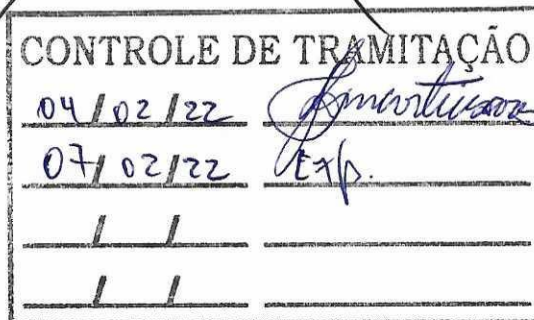 CONTROLE DE TRAMITAÇÃO
04/02/22
07/02/22 Exp.
/ /
/ /